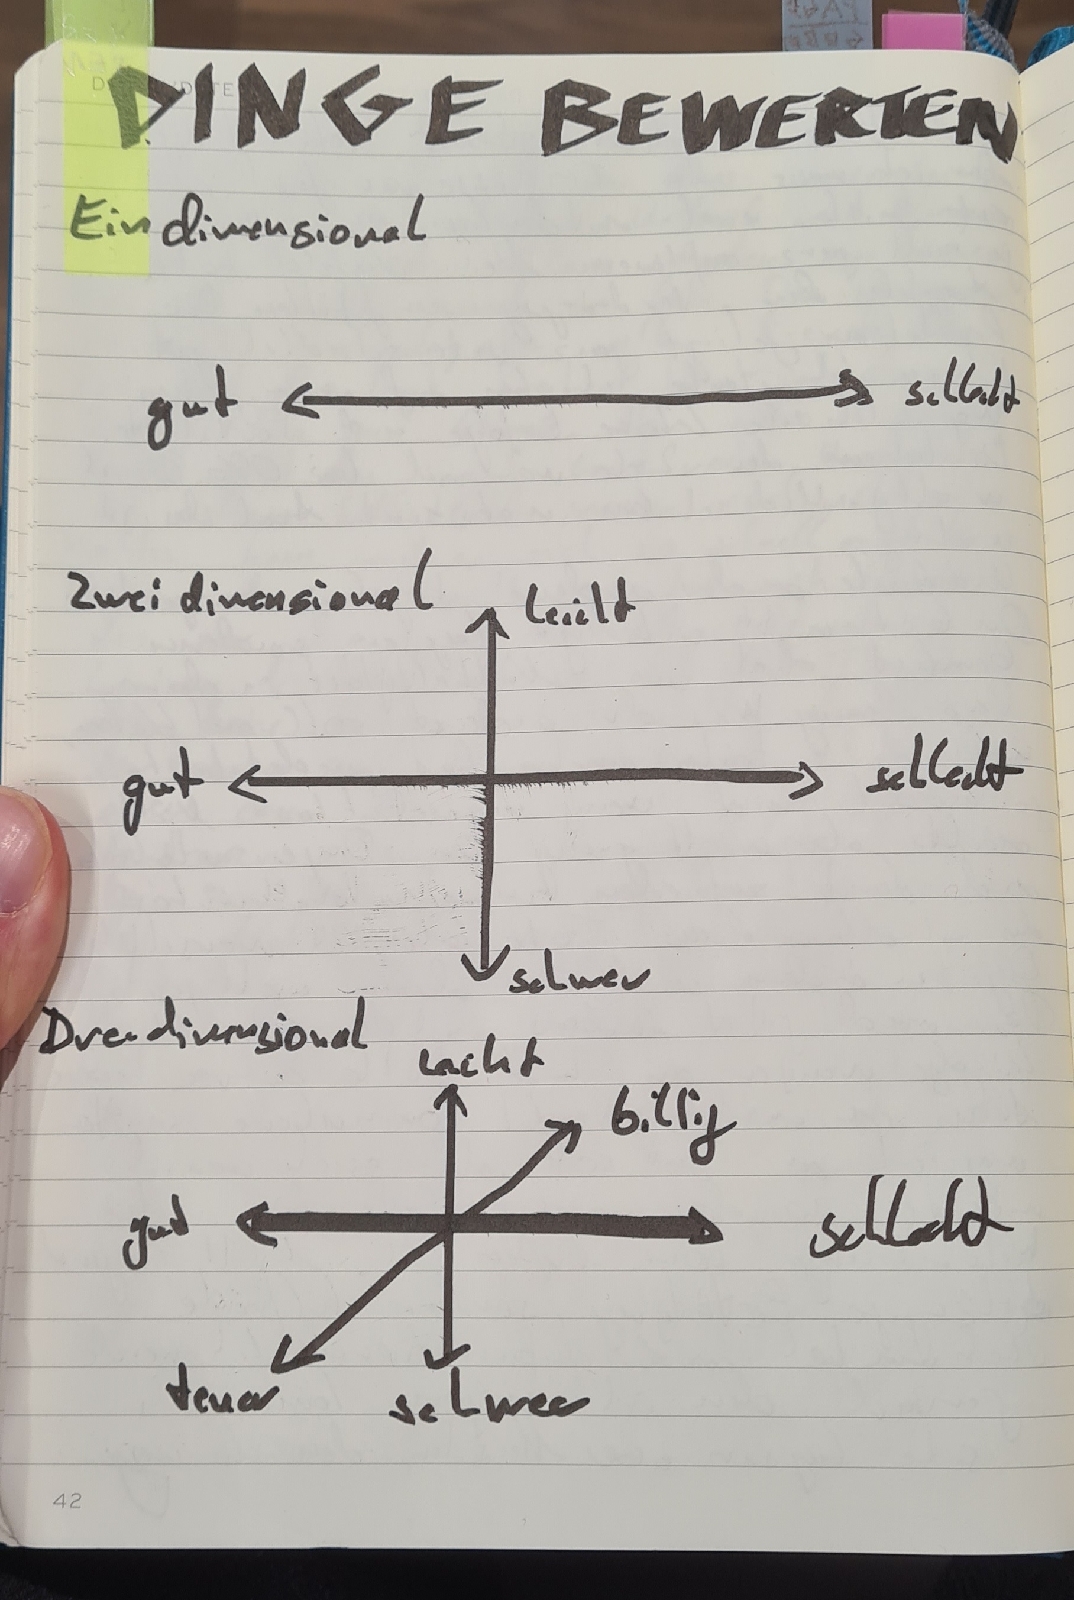 DINGE BEWERTEN
Eindimensional
gut schlecht
Zweidimensional
leicht
gut schlecht
schwer
Dreidimensional
leicht
billig
gut schlecht
teuer schwer
42